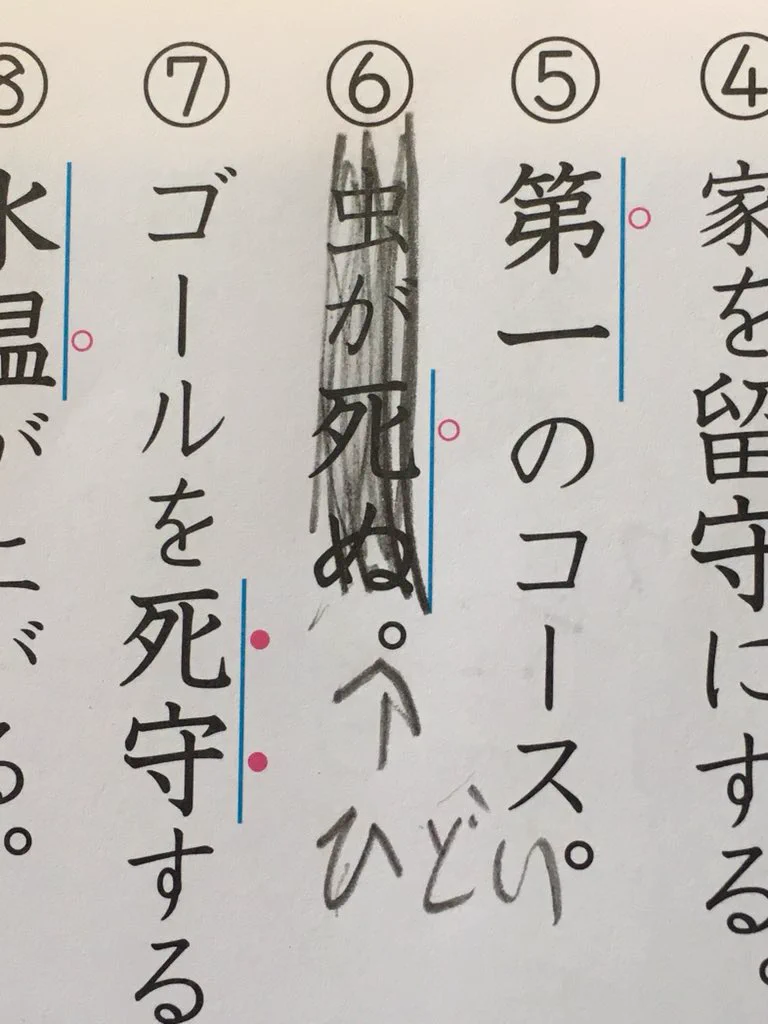 ④家を留守にする。
⑤第一のコース。
⑥虫が死ぬ。
↑
ひどい
⑦ゴールを死守する
⑧水温が